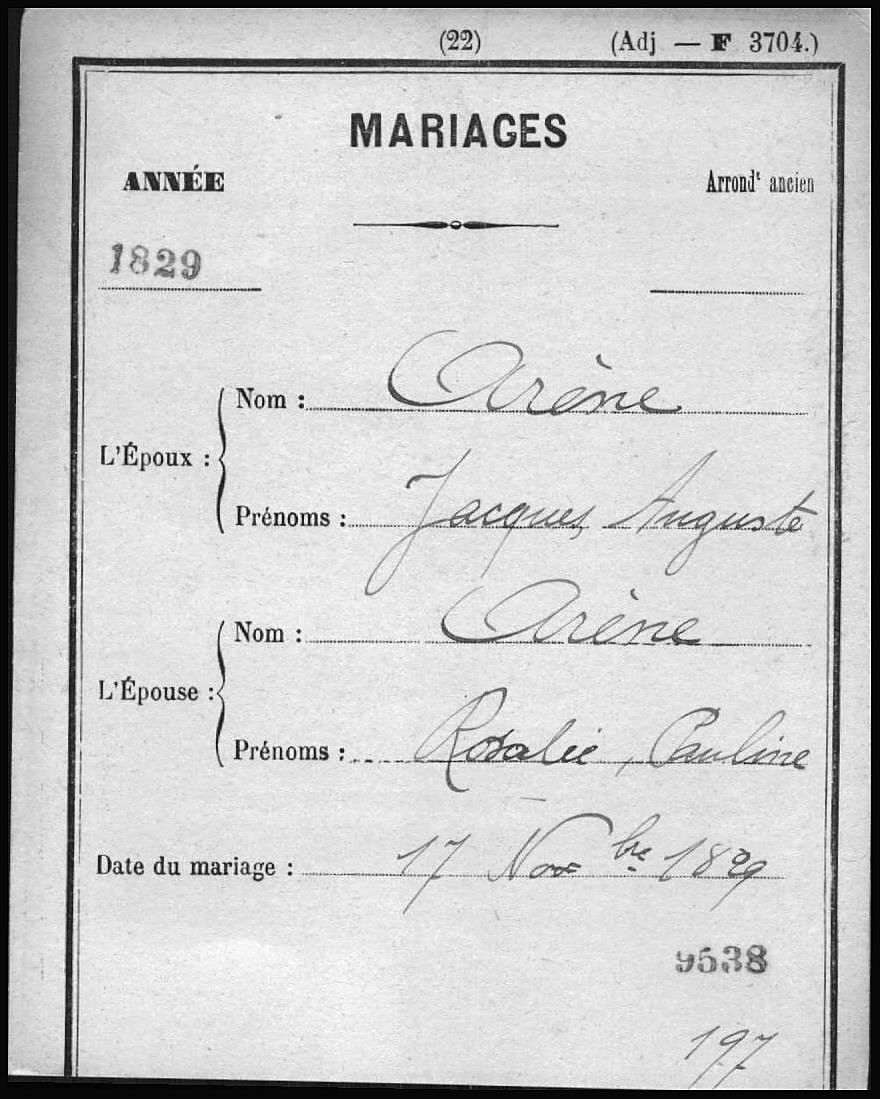 (22) (Adj — F 3704.)
MARIAGES
ANNÉE Arrondt ancien
1829
Nom : Arène
L'Époux :
Prénoms : Jacques Auguste
Nom : Arène
L'Épouse :
Prénoms : Rosalie, Pauline
Date du mariage : 17 Novbre 1829
9538
197